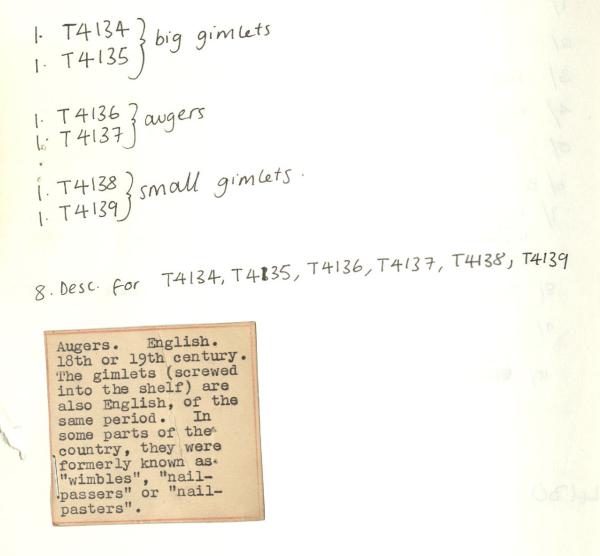 1. T4134 } big gimlets
1. T4135
1. T4136 } augers
1. T4137
1. T4138 } small gimlets.
1. T4139
8. Desc. for T4134, T4135, T4136, T4137, T4138, T4139
Augers. English.
18th or 19th century.
The gimlets (screwed
into the shelf) are
also English, of the
same period. In
some parts of the
country, they were
formerly known as
"wimbles", "nail-
passers" or "nail-
pasters".